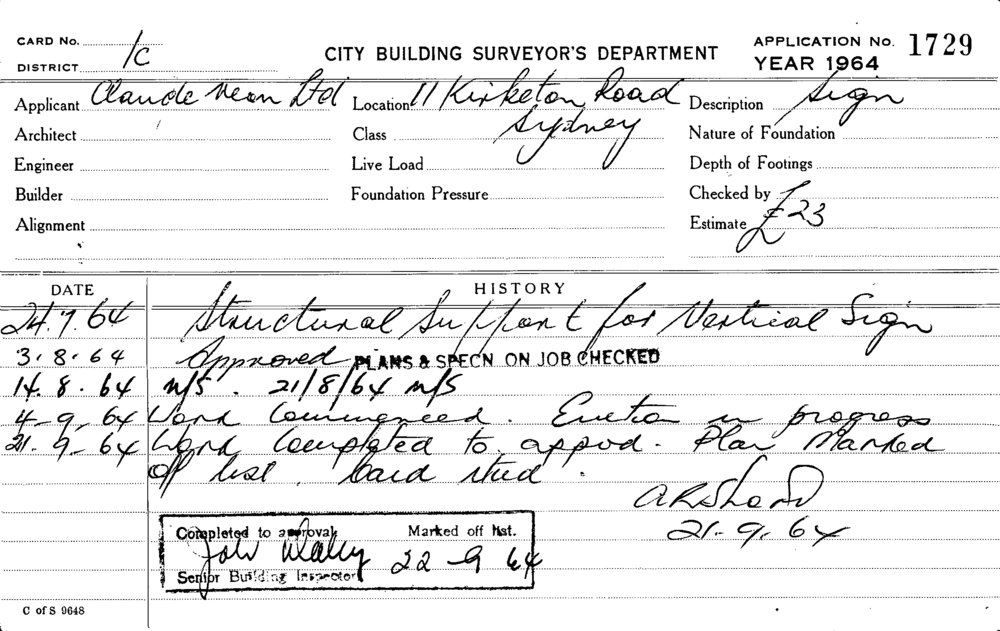 CARD No.
DISTRICT 1c
CITY BUILDING SURVEYOR'S DEPARTMENT
APPLICATION No. 1729
YEAR 1964
Applicant Claude Neon Ltd Location 11 Kirketon Road Description Sign
Architect Class Sydney Nature of Foundation
Engineer Live Load Depth of Footings
Builder Foundation Pressure Checked by
Alignment Estimate £23
DATE HISTORY
24.7.64 Structural Support for Vertical Sign
3.8.64 Approved PLANS & SPECN ON JOB CHECKED
14.8.64 N/S. 21/8/64 N/S
4-9-64 Work Commenced. Erection in progress
21-9-64 Work Completed to appvd. Plan Marked
off list. Card
21-9-64
Completed to approval Marked off list.
22-9 64
Senior Building Inspector
C of S 9648